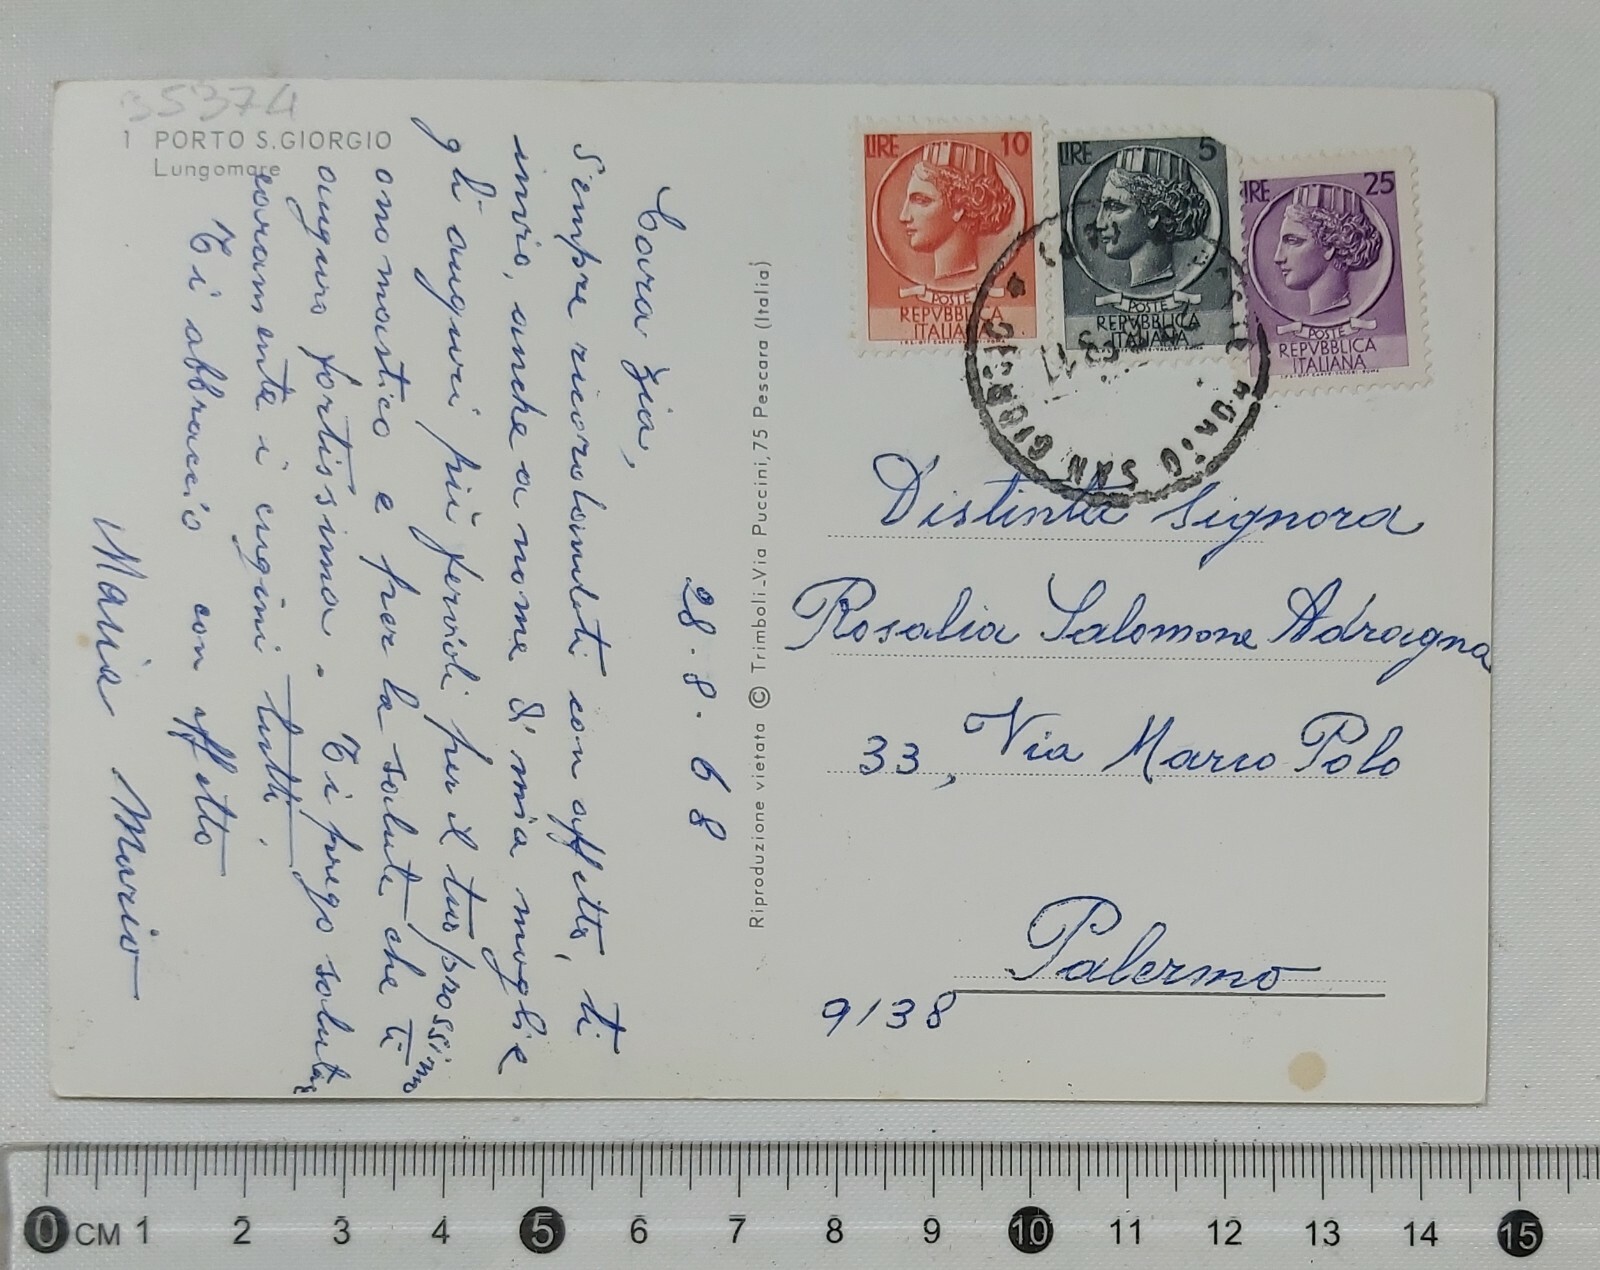 35374
1 PORTO S. GIORGIO
Lungomare
28.8.68
Cara Zia,
sempre ricordandoti con affetto, ti
invio, anche a nome di mia moglie
gli auguri più fervidi per il tuo prossimo
onomastico e per la salute che ti
auguro fortissima. Ti prego salutar
caramente i cugini tutti.
Ti abbraccio con affetto
Maria Mario
Riproduzione vietata © Trimboli - Via Puccini, 75 Pescara (Italia)
LIRE 10
POSTE
REPVBBLICA
ITALIANA
LIRE 5
POSTE
REPVBBLICA
ITALIANA
LIRE 25
POSTE
REPVBBLICA
ITALIANA
PORTO SAN GIORGIO
Distinta Signora
Rosalia Salomone Adragna
33, Via Marco Polo
Palermo
9138
0 CM 1 2 3 4 5 6 7 8 9 10 11 12 13 14 15